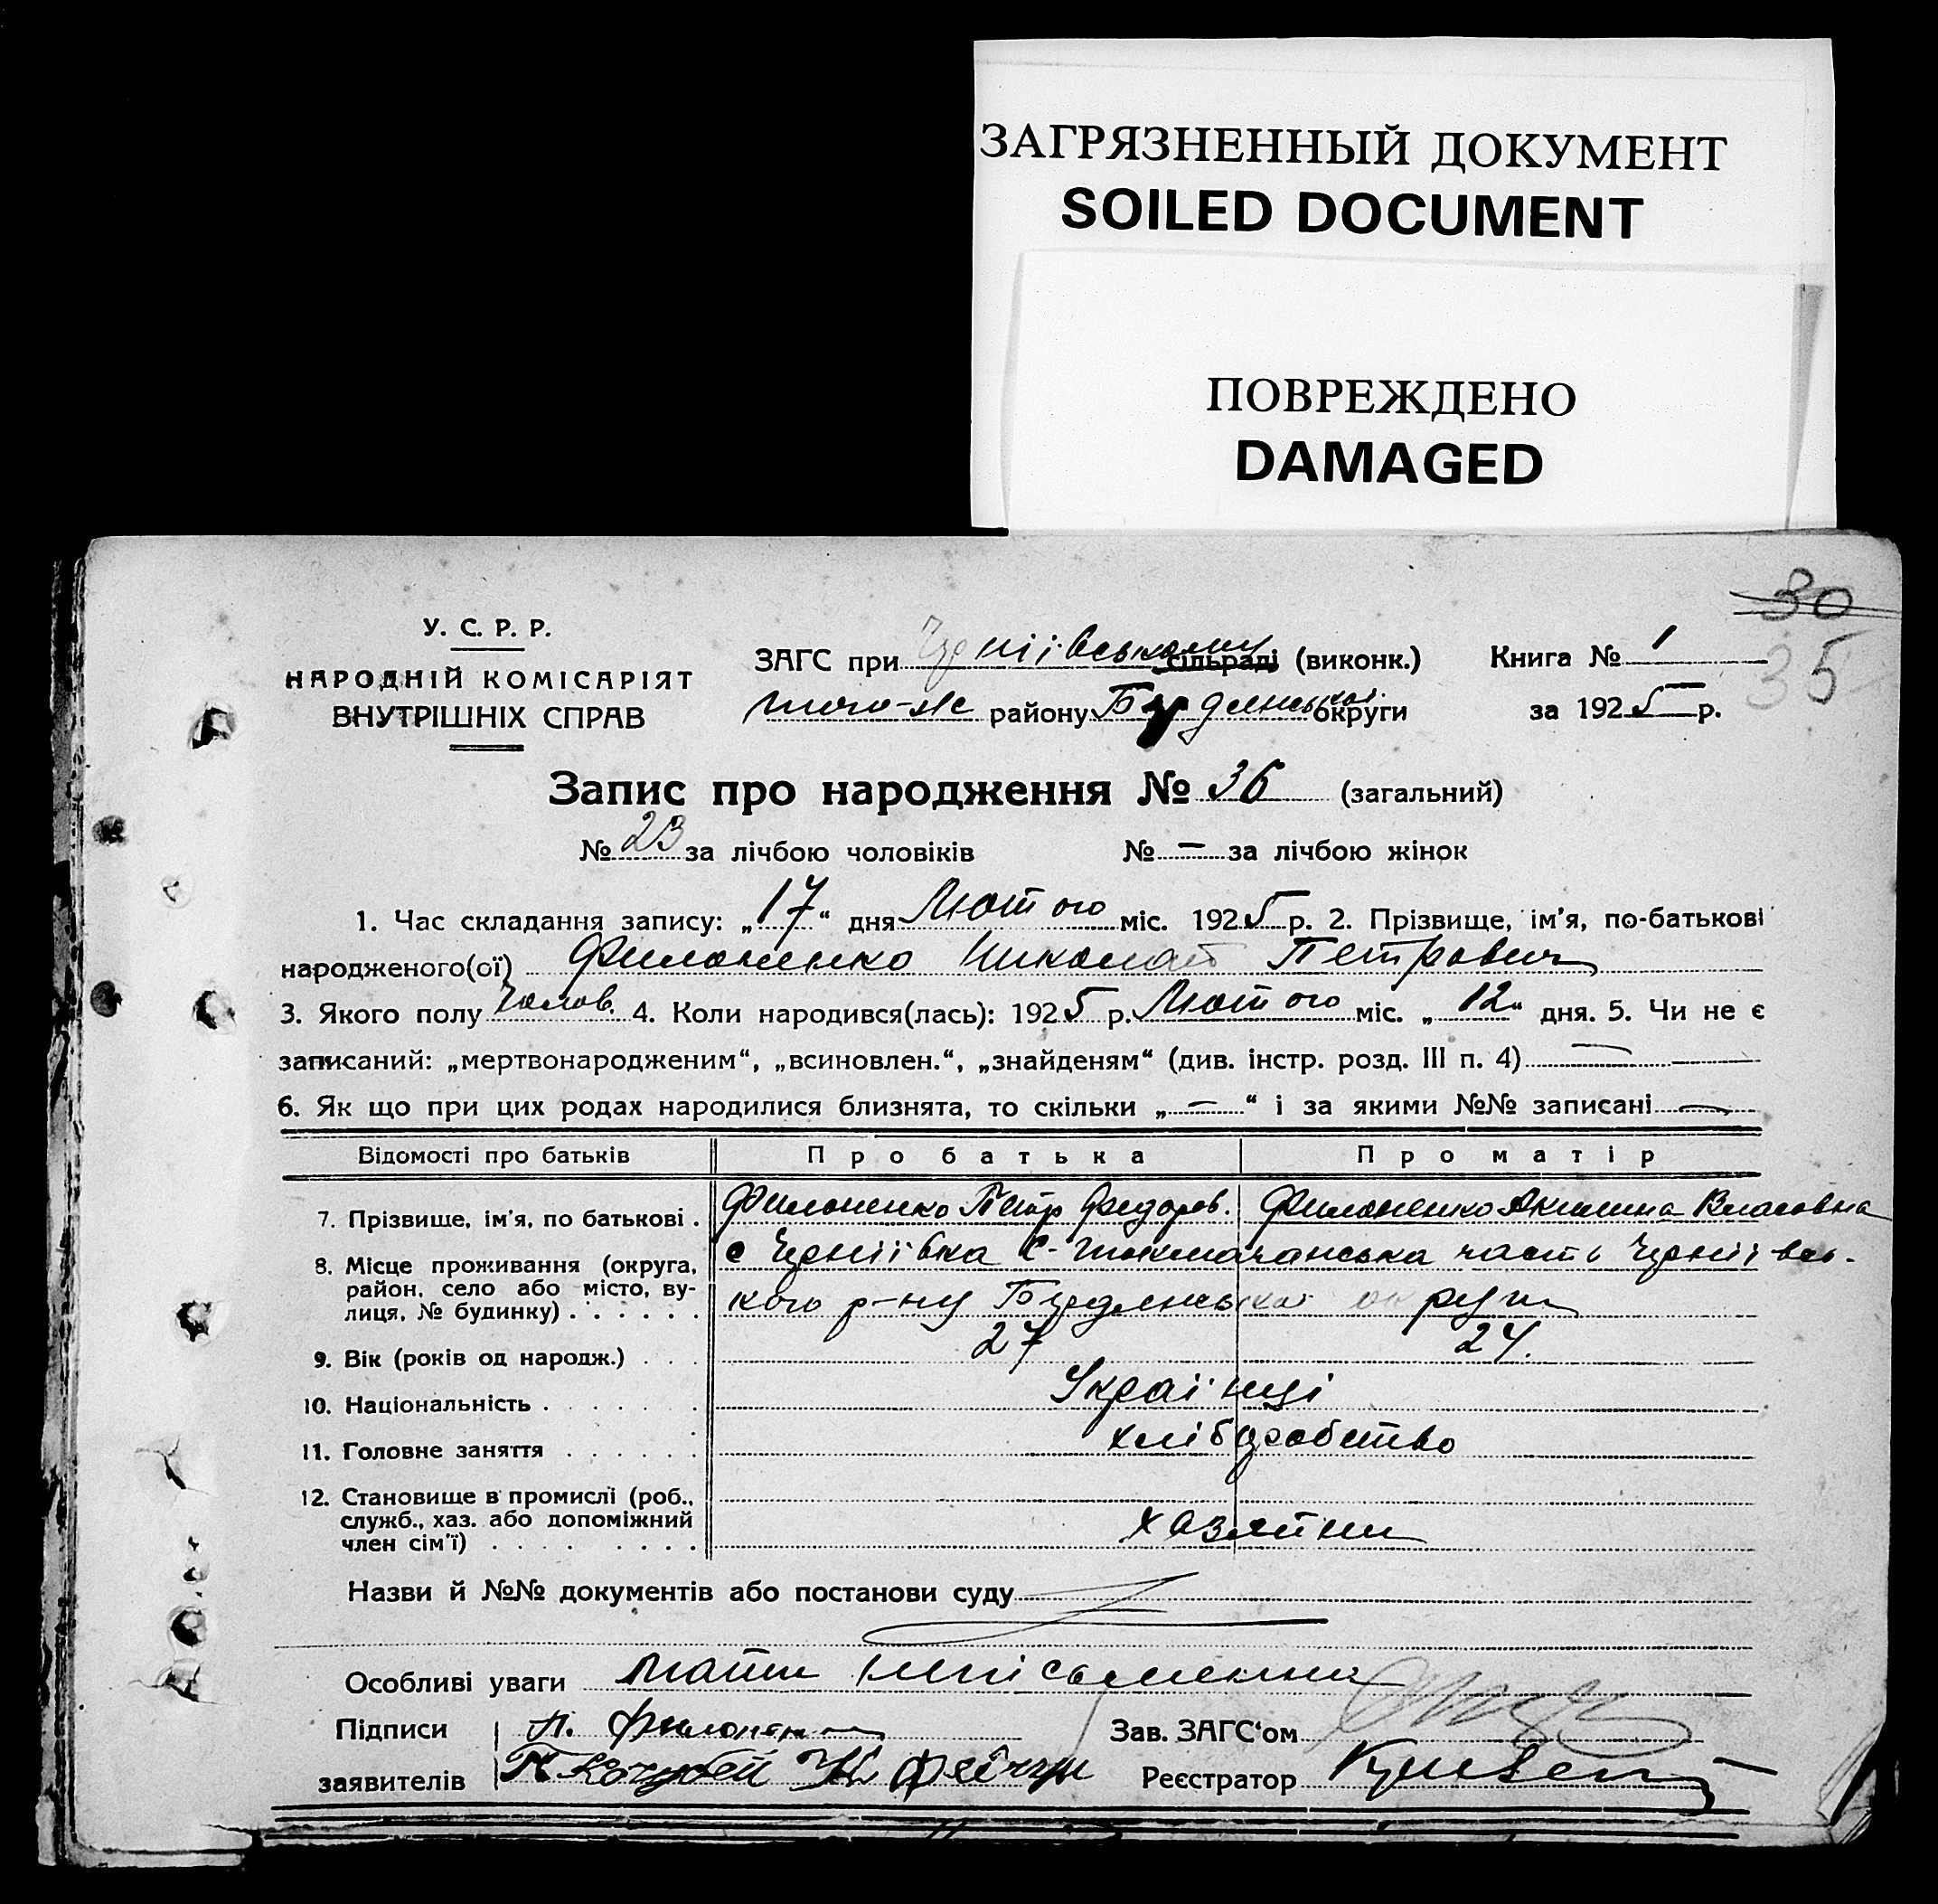 ЗАГРЯЗНЕННЫЙ ДОКУМЕНТ
SOILED DOCUMENT
ПОВРЕЖДЕНО
DAMAGED
30
35
У. С. Р. Р.
НАРОДНІЙ КОМІСАРІЯТ
ВНУТРІШНІХ СПРАВ
ЗАГС при Черніівському сільраді (виконк.) Книга № 1
того-же району Бердянської округи за 1925 р.
Запис про народження № 36 (загальний)
№ 23 за лічбою чоловіків № — за лічбою жінок
1. Час складання запису: „17“ дня Лютого міс. 1925 р. 2. Прізвище, ім'я, по-батькові
народженого(ої) Филоненко Николай Петрович
3. Якого полу Чолов. 4. Коли народився(лась): 1925 р. Лютого міс. „12“ дня. 5. Чи не є
записаний: „мертвонародженим“, „всиновлен.“, „знайденям“ (див. інстр. розд. III п. 4) —
6. Як що при цих родах народилися близнята, то скільки „—“ і за якими №№ записані —
Відомості про батьків Про батька Про матір
7. Прізвище, ім'я, по батькові . Филоненко Петр Федоров. Филоненко Акилина Власовна
8. Місце проживання (округа, район, село або місто, вулиця, № будинку) . . . . . . с Черніївка С-Токмачанська часть Чернііевсь-
кого р-ну Бердянської округи
9. Вік (років од народж.) . . . 27 24.
10. Національність . . . . . . . Українці
11. Головне заняття . . . . . . хліборобство
12. Становище в промислі (роб.,
служб., хаз. або допоміжний
член сім'ї) . . . . . . . . хазяїни
Назви й №№ документів або постанови суду
Особливі уваги мати
Підписи П. Филоненко Зав. ЗАГС'ом
заявителів П Кочубей Реєстратор